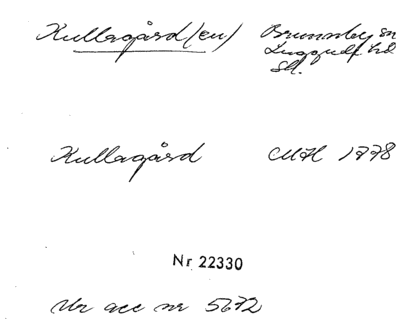 Kullagård(en) Brunnby sn
Luggude hd
Sk.
Kullagård CMH 1778
Nr 22330
Ur acc nr 5672